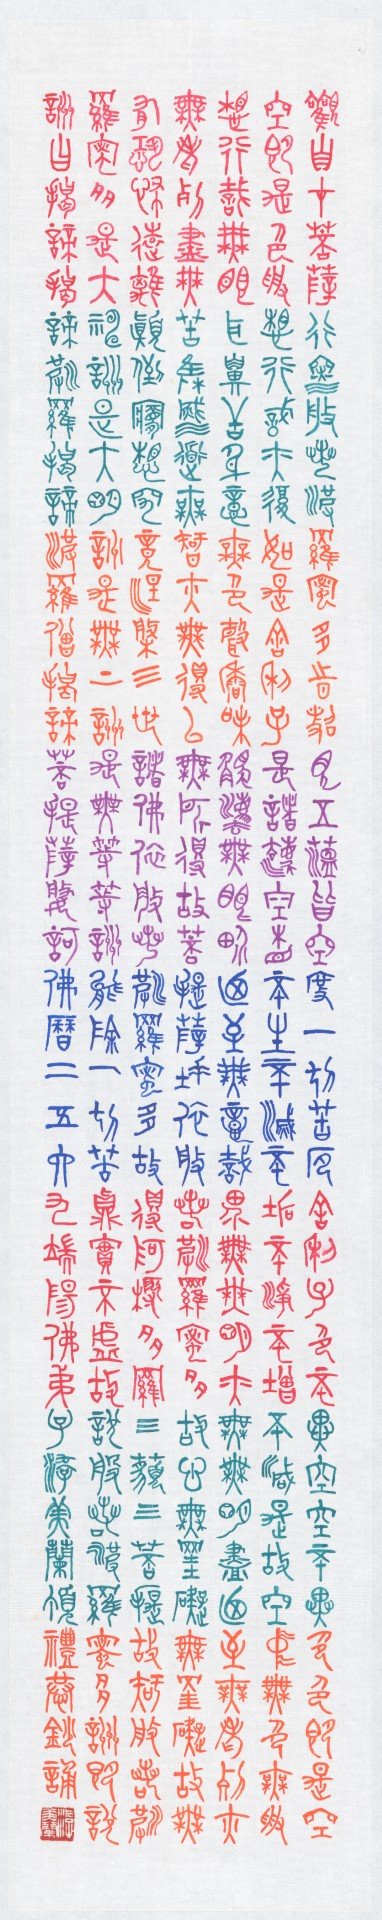 觀自在菩薩行深般若波羅蜜多時照見五蘊皆空度一切苦厄舍利子色不異空空不異色色即是空
空即是色受想行識亦復如是舍利子是諸法空相不生不滅不垢不淨不增不減是故空中無色無受
想行識無眼耳鼻舌身意無色聲香味觸法無眼界乃至無意識界無無明亦無無明盡乃至無老死亦
無老死盡無苦集滅道無智亦無得以無所得故菩提薩埵依般若波羅蜜多故心無罣礙無罣礙故無
有恐怖遠離顛倒夢想究竟涅槃三世諸佛依般若波羅蜜多故得阿耨多羅三藐三菩提故知般若波
羅蜜多是大神咒是大明咒是無上咒是無等等咒能除一切苦真實不虛故說般若波羅蜜多咒即說
咒曰揭諦揭諦波羅揭諦波羅僧揭諦菩提薩婆訶佛曆二五六九端陽佛弟子游美蘭頂禮恭鈔誦